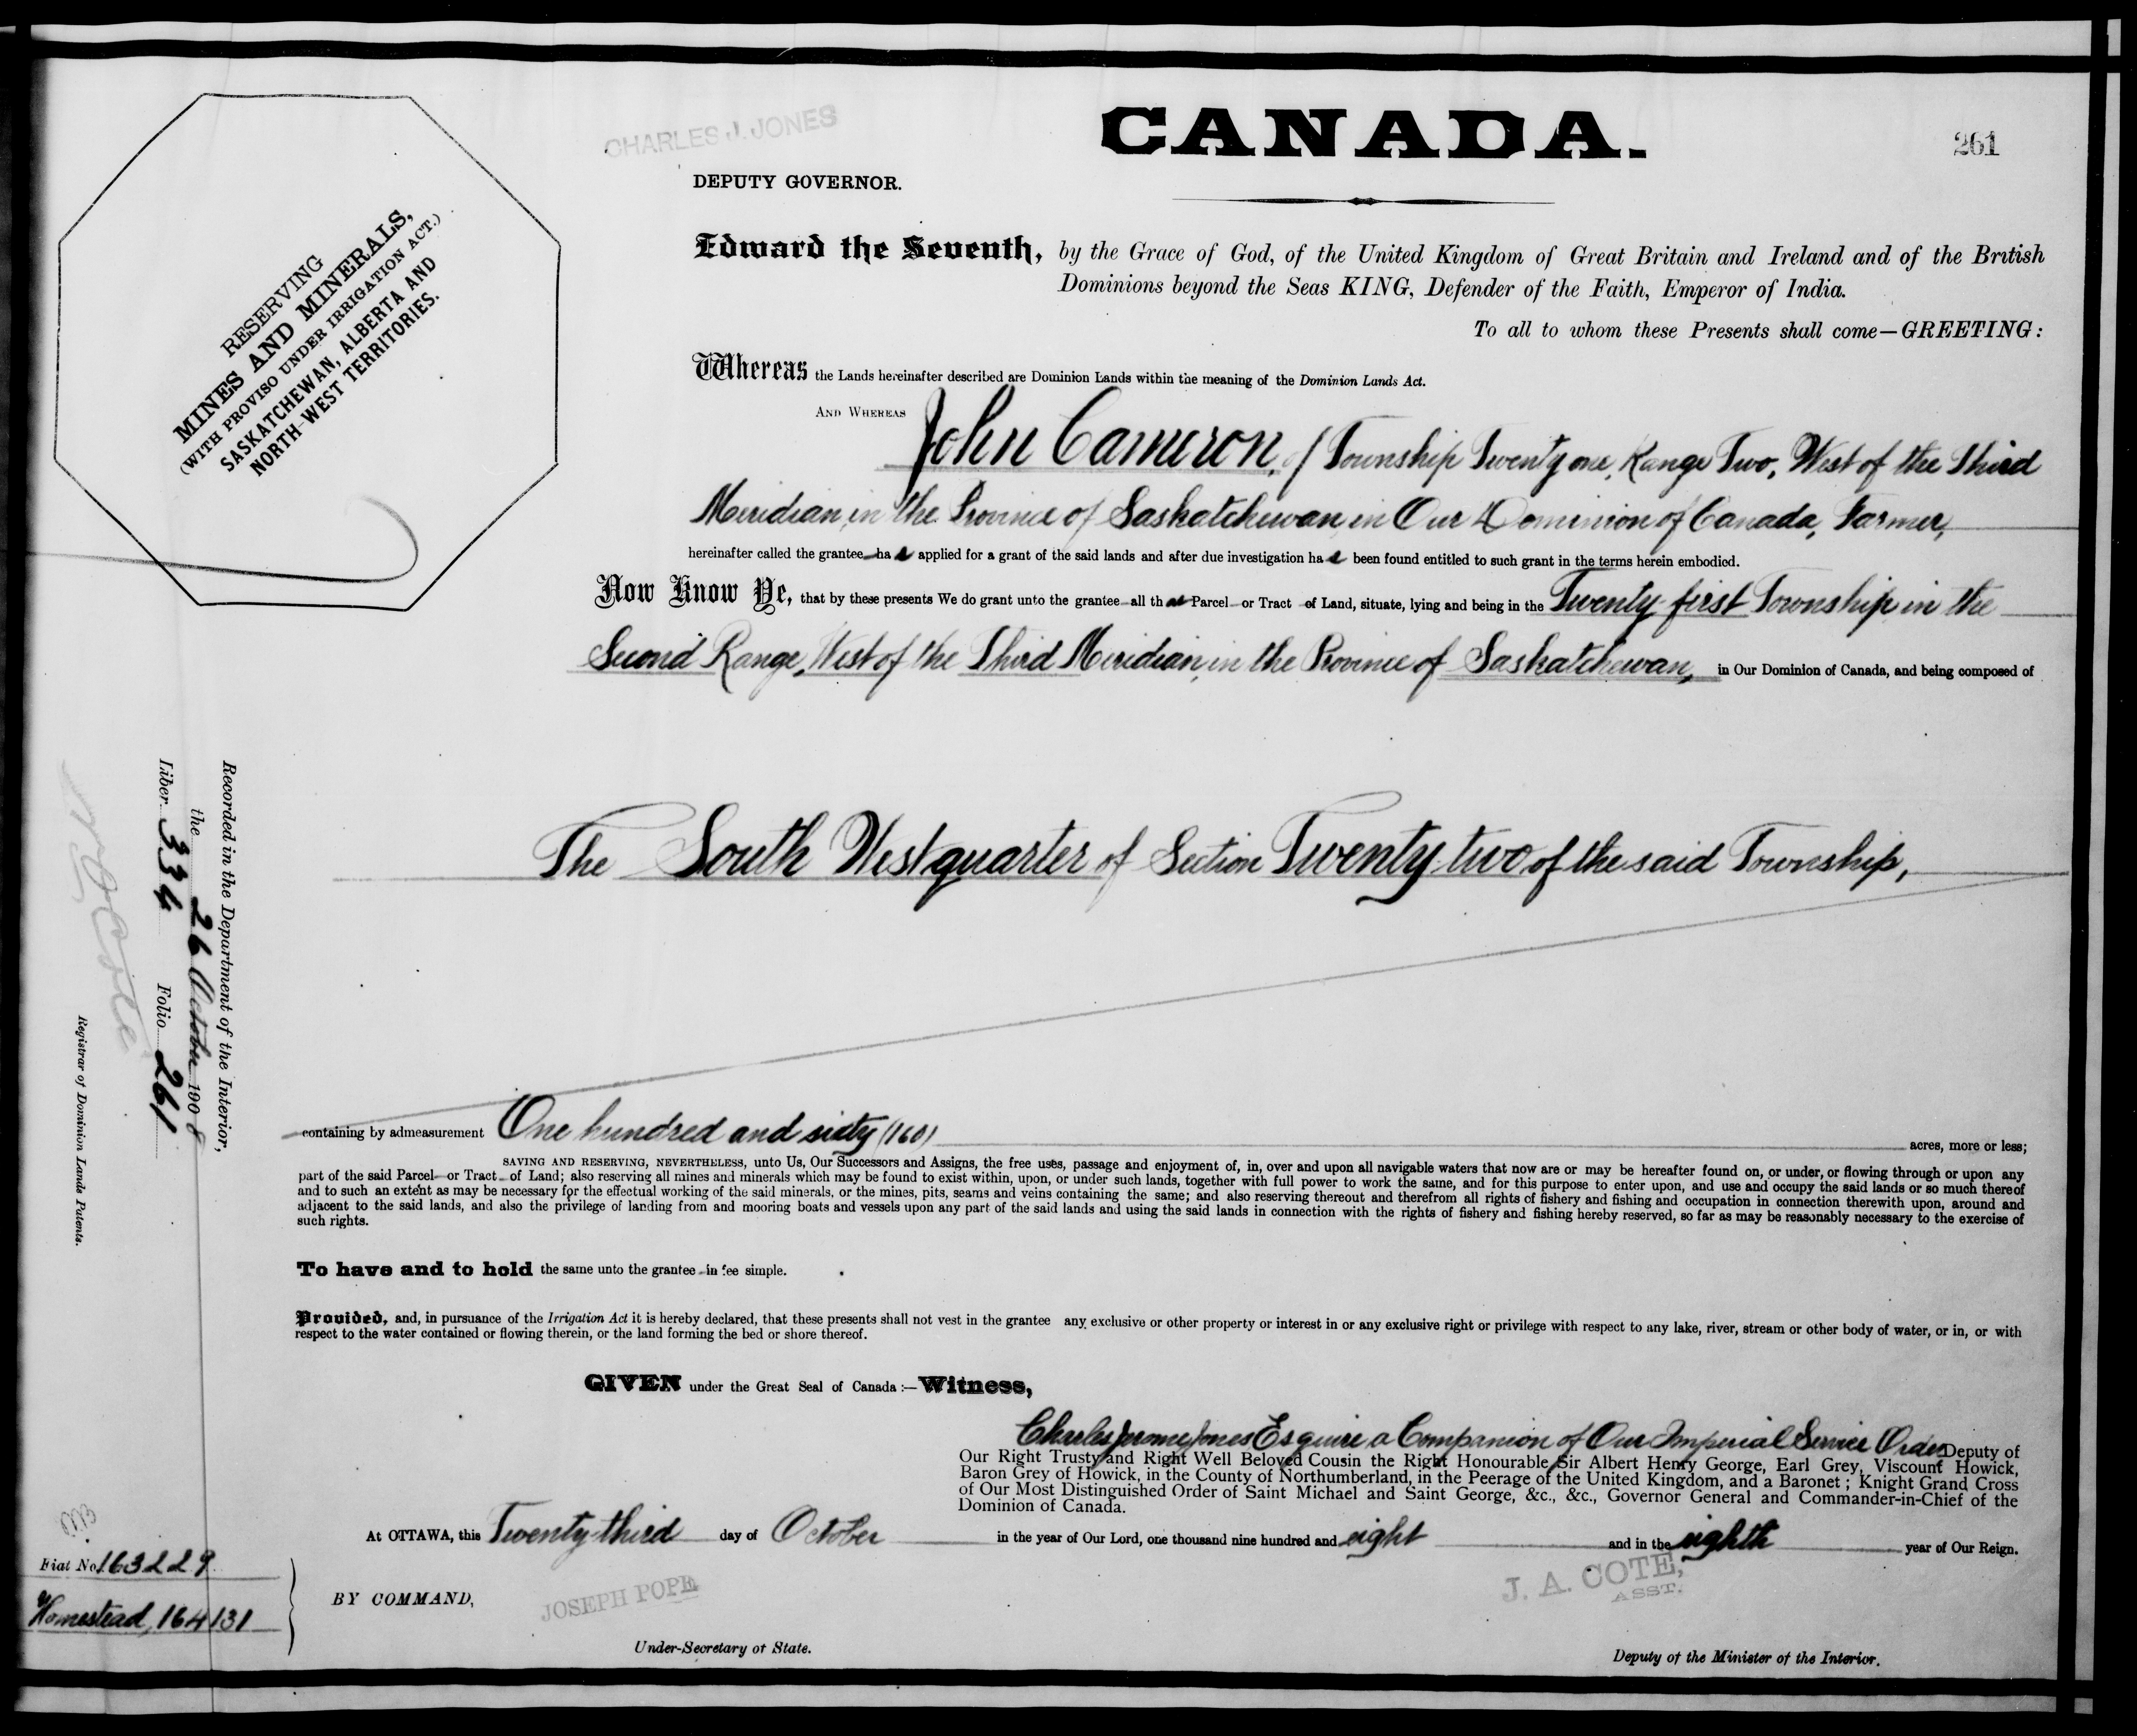 CHARLES J. JONES
DEPUTY GOVERNOR.
CANADA.
261
RESERVING
MINES AND MINERALS,
(WITH PROVISO UNDER IRRIGATION ACT.)
SASKATCHEWAN, ALBERTA AND
NORTH-WEST TERRITORIES.
Edward the Seventh, by the Grace of God, of the United Kingdom of Great Britain and Ireland and of the British
Dominions beyond the Seas KING, Defender of the Faith, Emperor of India.
To all to whom these Presents shall come—GREETING:
Whereas the Lands hereinafter described are Dominion Lands within the meaning of the Dominion Lands Act.
AND WHEREAS John Cameron, of Township Twenty one, Range Two, West of the Third
Meridian, in the Province of Saskatchewan, in Our Dominion of Canada, Farmer,
hereinafter called the grantee has applied for a grant of the said lands and after due investigation has been found entitled to such grant in the terms herein embodied.
Now Know Ye, that by these presents We do grant unto the grantee all that Parcel or Tract of Land, situate, lying and being in the Twenty first Township, in the
Second Range, West of the Third Meridian, in the Province of Saskatchewan, in Our Dominion of Canada, and being composed of
The South West quarter of Section Twenty two of the said Township,
containing by admeasurement One hundred and sixty (160) acres, more or less;
SAVING AND RESERVING, NEVERTHELESS, unto Us, Our Successors and Assigns, the free uses, passage and enjoyment of, in, over and upon all navigable waters that now are or may be hereafter found on, or under, or flowing through or upon any
part of the said Parcel or Tract of Land; also reserving all mines and minerals which may be found to exist within, upon, or under such lands, together with full power to work the same, and for this purpose to enter upon, and use and occupy the said lands or so much thereof
and to such an extent as may be necessary for the effectual working of the said minerals, or the mines, pits, seams and veins containing the same; and also reserving thereout and therefrom all rights of fishery and fishing and occupation in connection therewith upon, around and
adjacent to the said lands, and also the privilege of landing from and mooring boats and vessels upon any part of the said lands and using the said lands in connection with the rights of fishery and fishing hereby reserved, so far as may be reasonably necessary to the exercise of
such rights.
To have and to hold the same unto the grantee in fee simple.
Provided, and, in pursuance of the Irrigation Act it is hereby declared, that these presents shall not vest in the grantee any exclusive or other property or interest in or any exclusive right or privilege with respect to any lake, river, stream or other body of water, or in, or with
respect to the water contained or flowing therein, or the land forming the bed or shore thereof.
GIVEN under the Great Seal of Canada:—Witness,
Charles Jerome Jones Esquire a Companion of Our Imperial Service Order Deputy of
Our Right Trusty and Right Well Beloved Cousin the Right Honourable Sir Albert Henry George, Earl Grey, Viscount Howick,
Baron Grey of Howick, in the County of Northumberland, in the Peerage of the United Kingdom, and a Baronet; Knight Grand Cross
of Our Most Distinguished Order of Saint Michael and Saint George, &c., &c., Governor General and Commander-in-Chief of the
Dominion of Canada.
At OTTAWA, this Twenty-third day of October in the year of Our Lord, one thousand nine hundred and eight and in the eighth year of Our Reign.
BY COMMAND,
JOSEPH POPE
Under-Secretary of State.
J. A. COTE,
ASST.
Deputy of the Minister of the Interior.
Recorded in the Department of the Interior,
the 26 October 1908
Liber 334 Folio 261
Registrar of Dominion Lands Patents.
Fiat No. 163229
Homestead, 164131